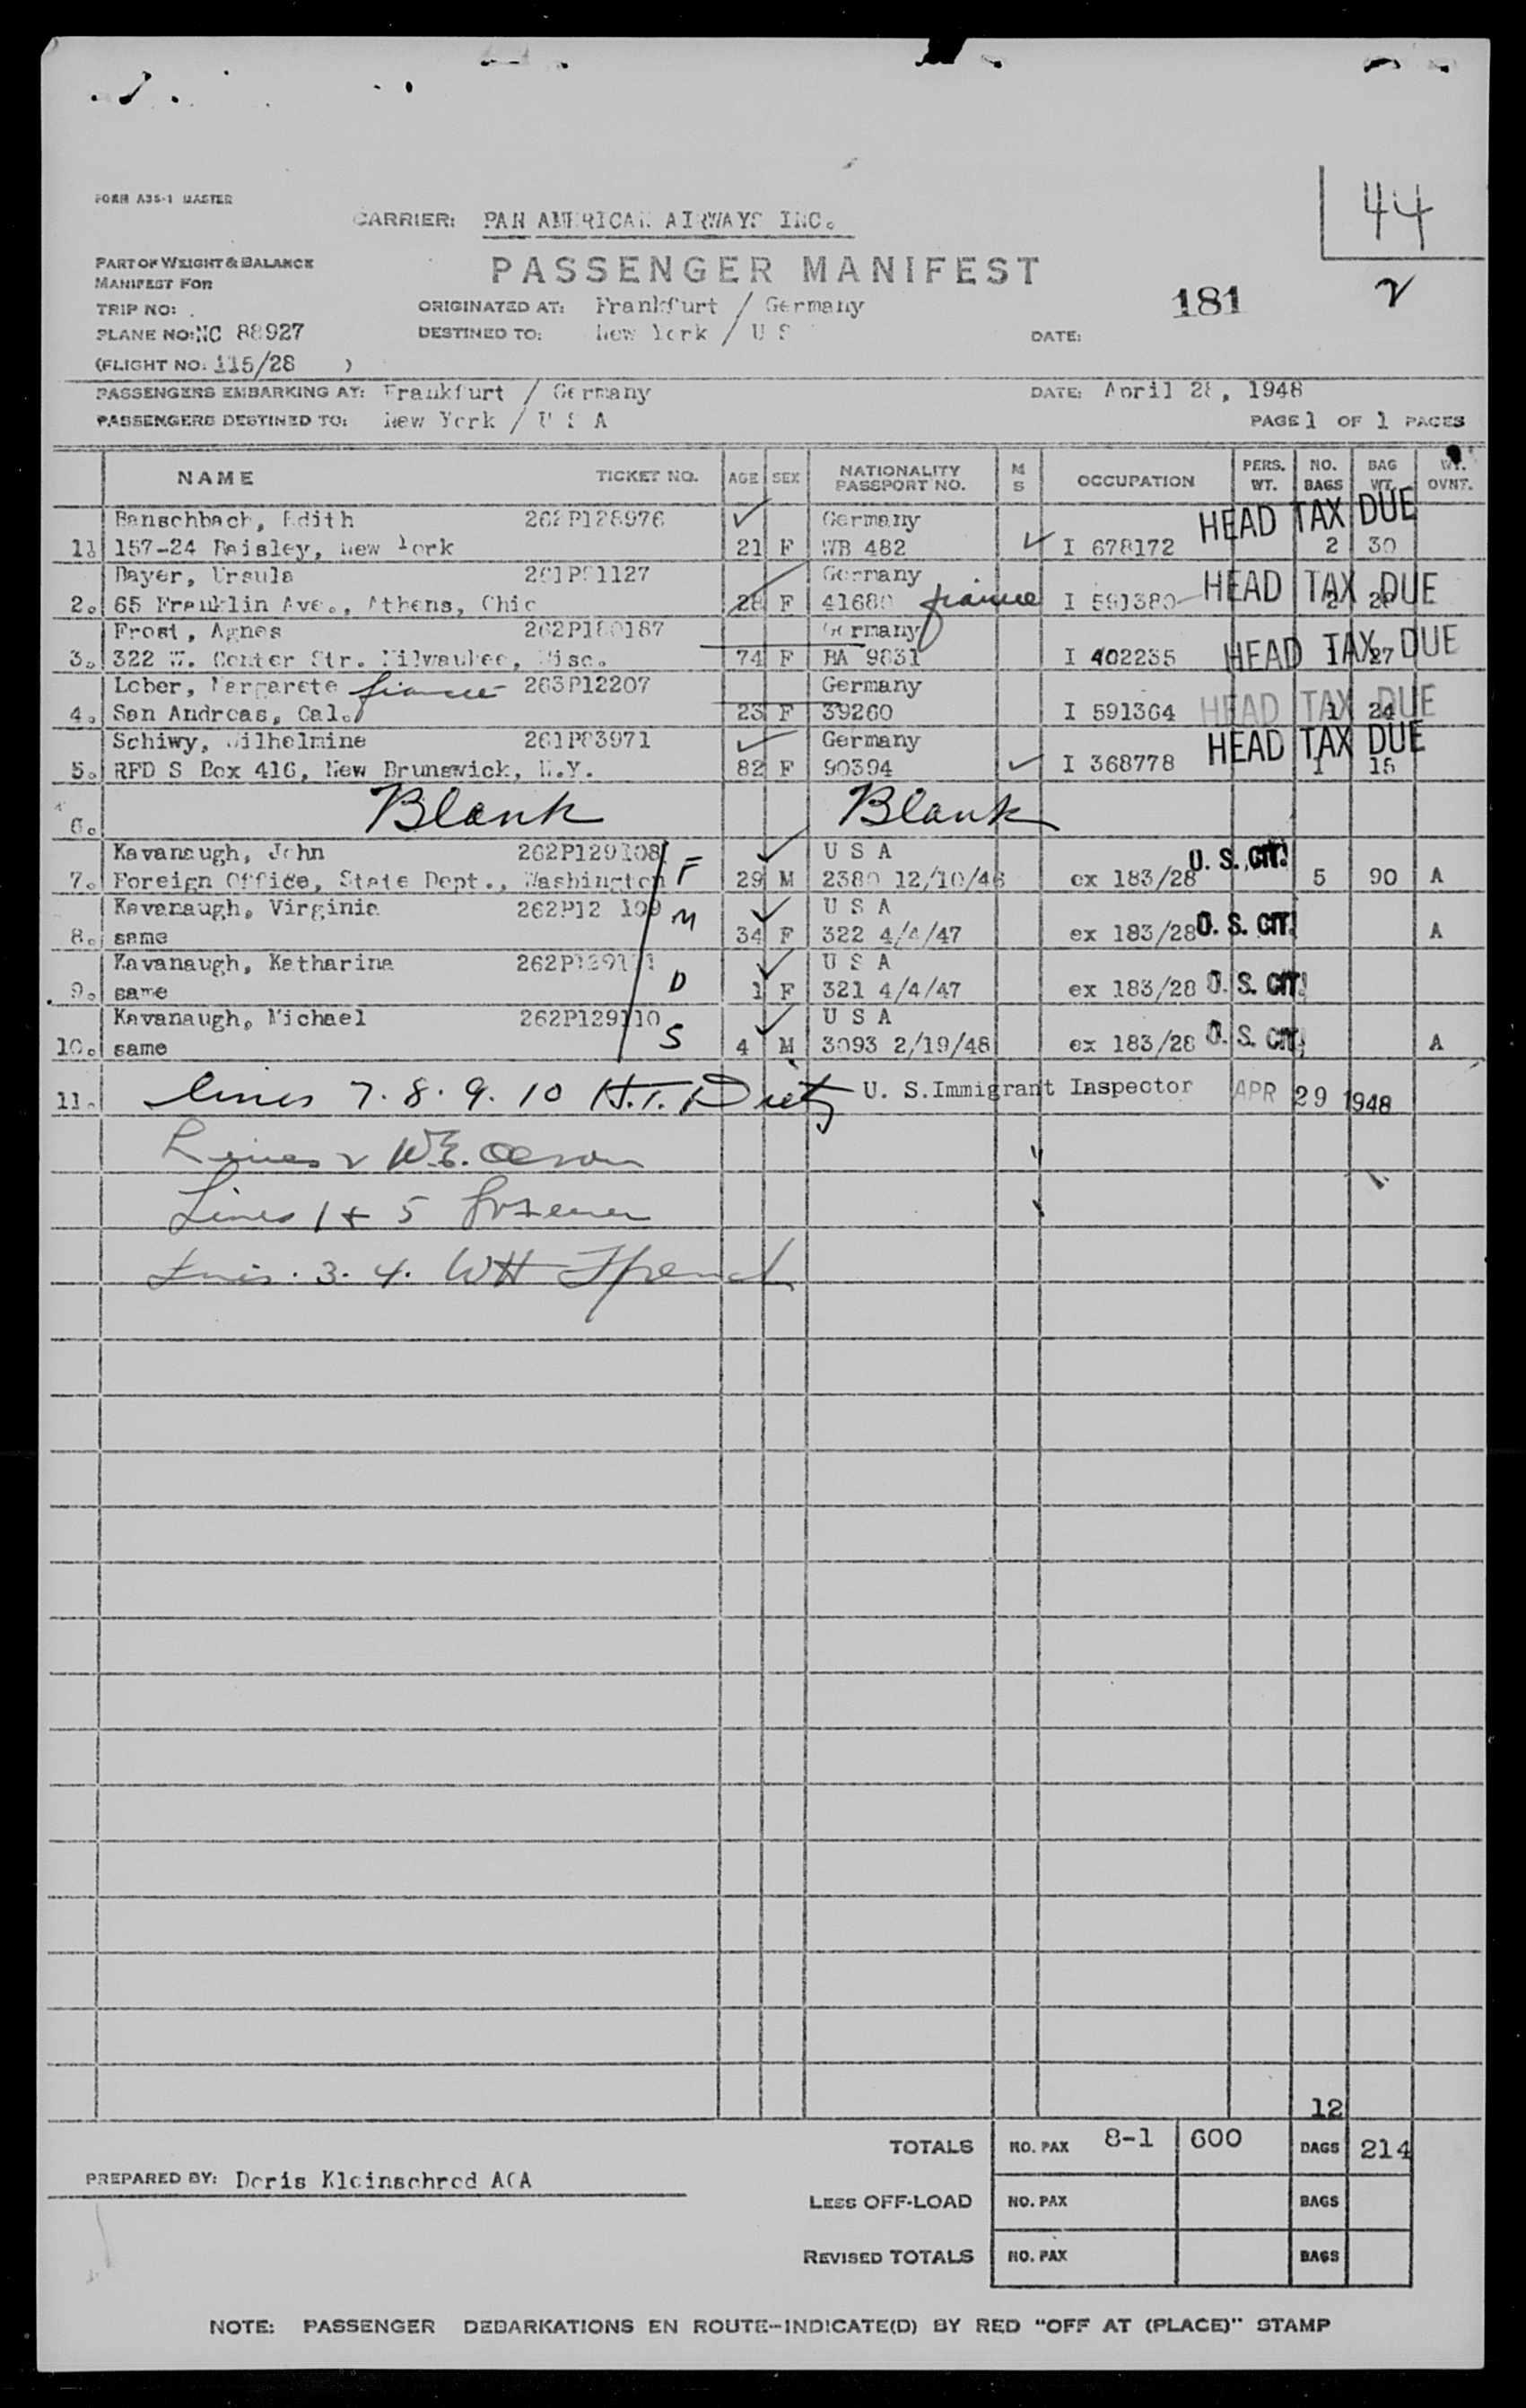 FORM A35-1 MASTER
44
CARRIER: PAN AMERICAN AIRWAYS INC.
PART OF WEIGHT & BALANCE
MANIFEST FOR
PASSENGER MANIFEST
181
2
TRIP NO:
ORIGINATED AT: Frankfurt / Germany
PLANE NO: NC 88927
DESTINED TO: New York / U S
DATE:
(FLIGHT NO: 115/28 )
PASSENGERS EMBARKING AT: Frankfurt / Germany DATE: April 28, 1948
PASSENGERS DESTINED TO: New York / U S A PAGE 1 OF 1 PAGES
NAME TICKET NO. AGE SEX NATIONALITY PASSPORT NO. M S OCCUPATION PERS. WT. NO. BAGS BAG WT. WT. OVNT.
Banschbach, Edith 262P128976 Germany HEAD TAX DUE
157-24 Baisley, New York 21 F WB 482 I 678172 2 30
Bayer, Ursula Germany
2. 65 Franklin Ave., Athens, Ohio 28 F 41680 fiancee I 591380 HEAD TAX DUE 2
Frost, Agnes 262P180187 Germany
3. 322 W. Center Str. Milwaukee, Wisc. 74 F BA 9831 I 402235 HEAD TAX DUE 1 27
Lober, Margarete fiancee 263P12207 Germany
4. San Andreas, Cal. 23 F 39260 I 591364 HEAD TAX DUE 1 24
Schiwy, Wilhelmine 261P83971 Germany HEAD TAX DUE
5. RFD S Box 416, New Brunswick, N.Y. 82 F 90394 I 368778 1 15
6. Blank Blank
Kavanaugh, John 262P129108 F U S A U. S. CIT.
7. Foreign Office, State Dept., Washington 29 M 2380 12/10/46 ex 183/28 5 90 A
Kavanaugh, Virginia 262P12 109 M U S A
8. same 34 F 322 4/4/47 ex 183/28 U. S. CIT. A
Kavanaugh, Katharina D U S A
9. same 1 F 321 4/4/47 ex 183/28 U. S. CIT.
Kavanaugh, Michael 262P129110 S U S A
10. same 4 M 3093 2/19/48 ex 183/28 U. S. CIT. A
11. lines 7. 8. 9. 10 H.T. Dietz U. S. Immigrant Inspector APR 29 1948
Lines 2 W.E.
Lines 1 & 5
3. 4. WH
12
TOTALS NO. PAX 8-1 600 BAGS 214
PREPARED BY: Doris Kleinschrod ACA
LESS OFF-LOAD NO. PAX BAGS
REVISED TOTALS NO. PAX BAGS
NOTE: PASSENGER DEBARKATIONS EN ROUTE--INDICATE(D) BY RED "OFF AT (PLACE)" STAMP